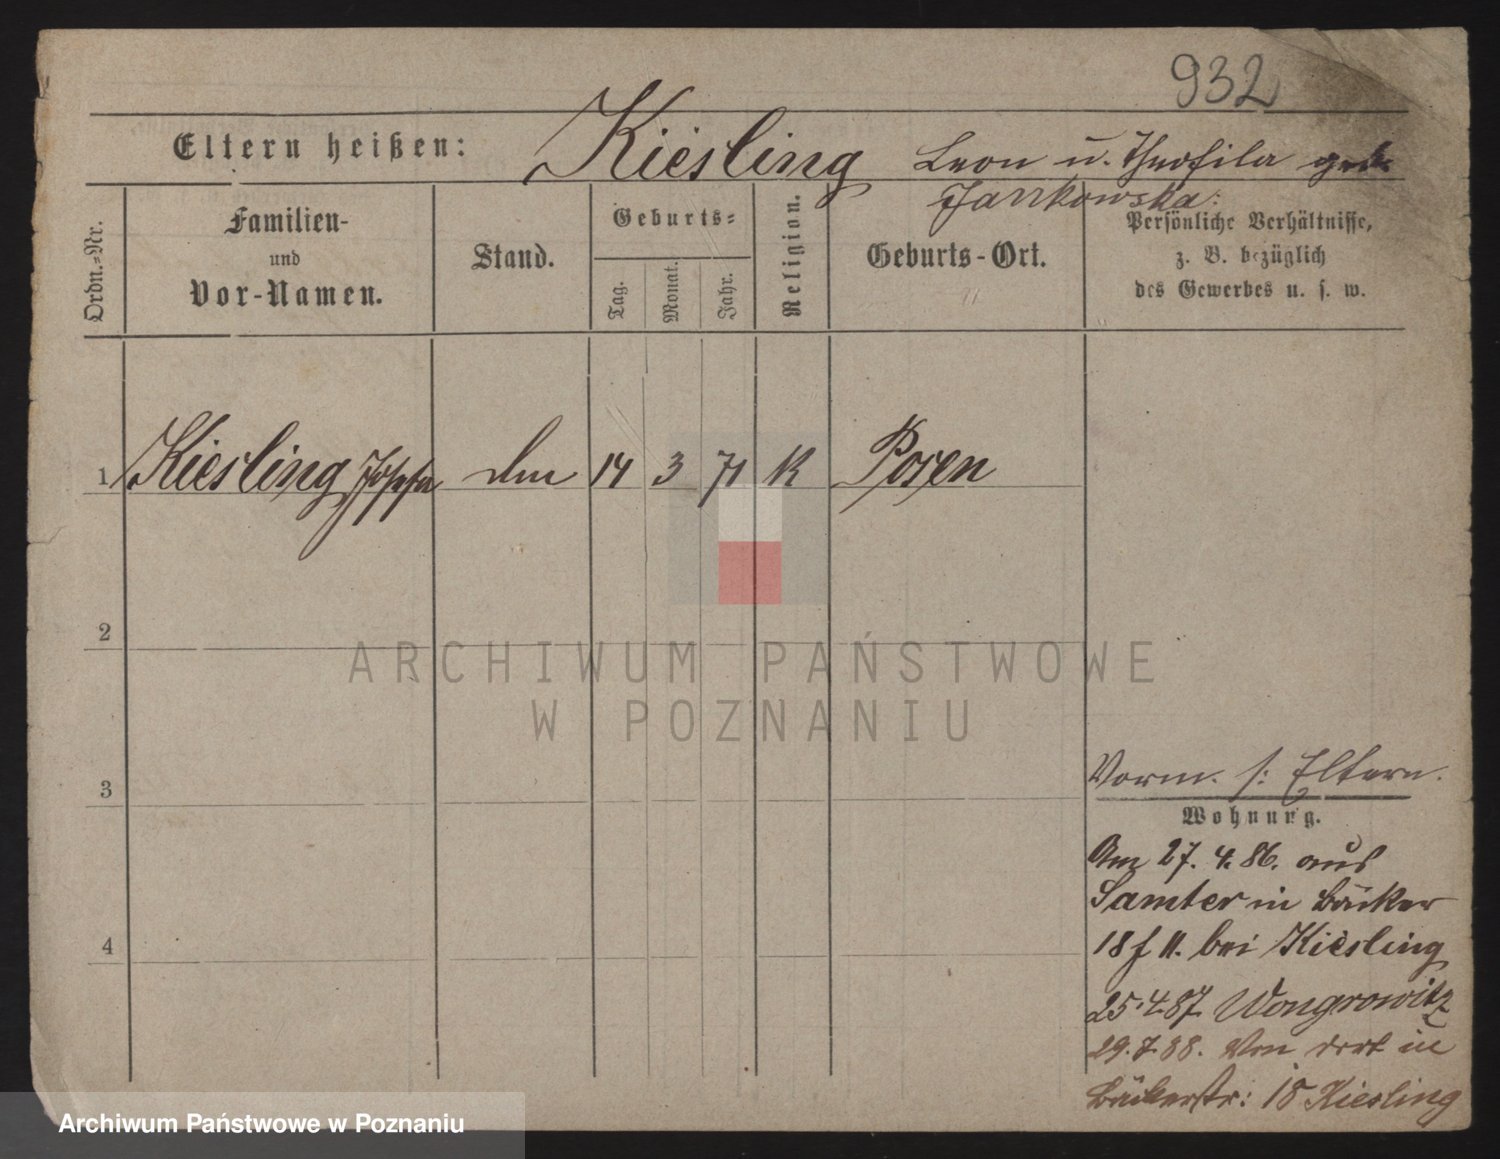 932
Eltern heißen: Kiesling Leon u. Theofila geb.
Jankowska.
Ordn.-Nr.
Familien-
und
Vor-Namen.
Stand.
Geburts-
Tag.
Monat.
Jahr.
Religion.
Geburts-Ort.
Persönliche Verhältnisse,
z. B. bezüglich
des Gewerbes u. s. w.
1 Kiesling 14 3 71 K Posen
2
ARCHIWUM PAŃSTWOWE
W POZNANIU
3
4
Vorm. s: Eltern.
Wohnung.
Am 27. 4. 86. aus
Samter in Bäcker
18 bei Kiesling
25.4.87. Wongrowitz
29.7.88. Von dort in
Bäckerstr: 18 Kiesling
Archiwum Państwowe w Poznaniu